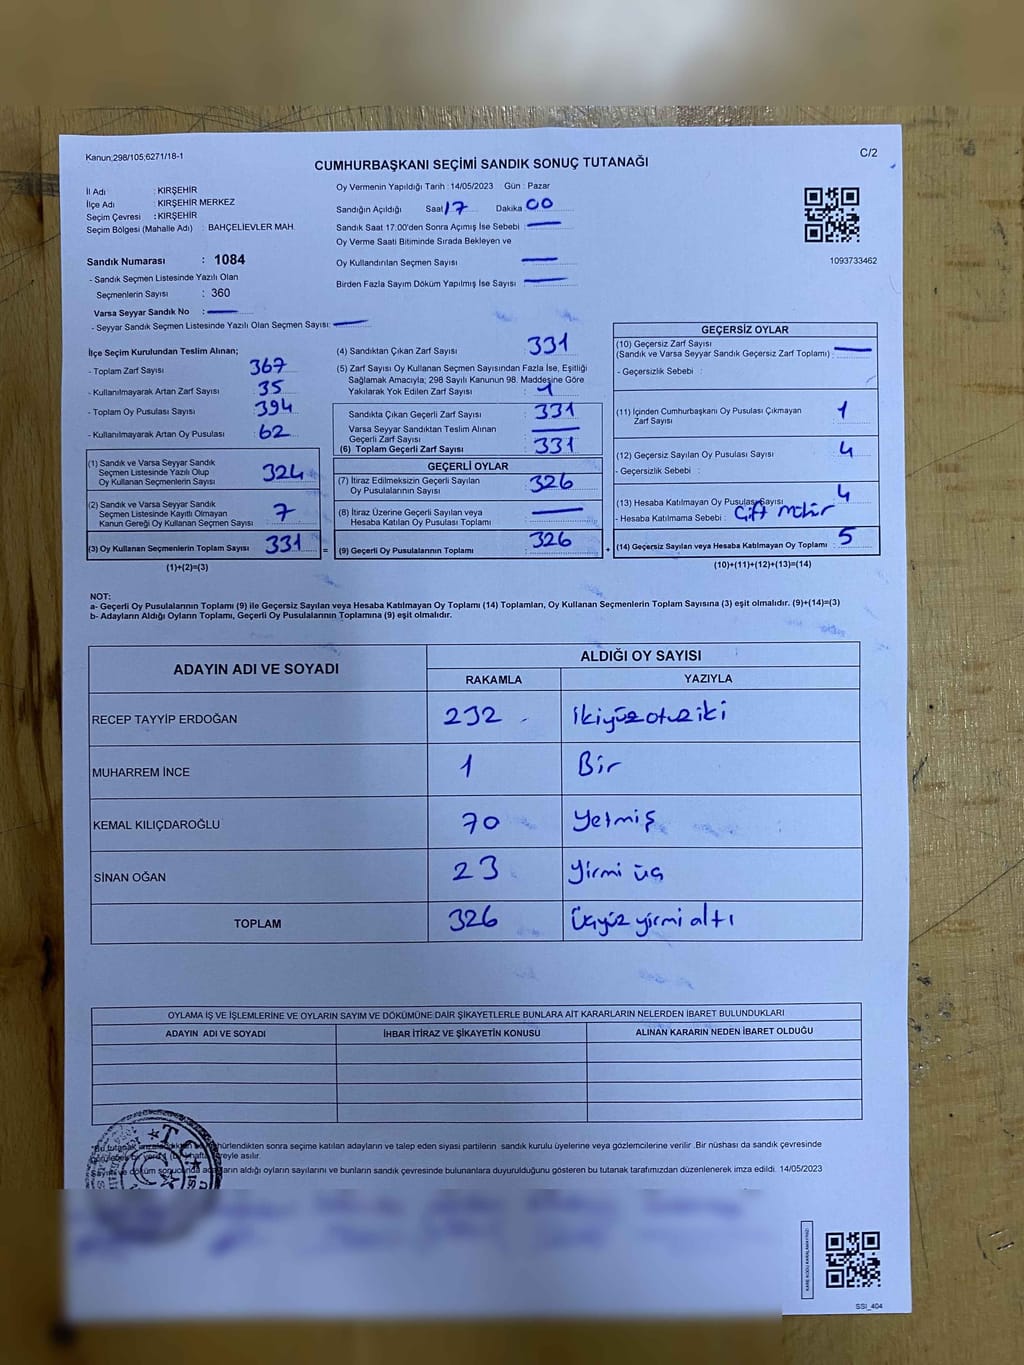 Kanun;298/105;6271/18-1
C/2
CUMHURBAŞKANI SEÇİMİ SANDIK SONUÇ TUTANAĞI
İl Adı : KIRŞEHİR
İlçe Adı : KIRŞEHİR MERKEZ
Seçim Çevresi : KIRŞEHİR
Seçim Bölgesi (Mahalle Adı) : BAHÇELİEVLER MAH.
Oy Vermenin Yapıldığı Tarih : 14/05/2023 Gün : Pazar
Sandığın Açıldığı Saat 17 Dakika 00
Sandık Saat 17.00'den Sonra Açımış İse Sebebi : —
Oy Verme Saati Bitiminde Sırada Bekleyen ve
Oy Kullandırılan Seçmen Sayısı —
Birden Fazla Sayım Döküm Yapılmış İse Sayısı : —
1093733462
Sandık Numarası : 1084
- Sandık Seçmen Listesinde Yazılı Olan
Seçmenlerin Sayısı : 360
Varsa Seyyar Sandık No : —
- Seyyar Sandık Seçmen Listesinde Yazılı Olan Seçmen Sayısı: —
İlçe Seçim Kurulundan Teslim Alınan;
- Toplam Zarf Sayısı 367
- Kullanılmayarak Artan Zarf Sayısı 35
- Toplam Oy Pusulası Sayısı 394
- Kullanılmayarak Artan Oy Pusulası 62
(1) Sandık ve Varsa Seyyar Sandık
Seçmen Listesinde Yazılı Olup
Oy Kullanan Seçmenlerin Sayısı 324
(2) Sandık ve Varsa Seyyar Sandık
Seçmen Listesinde Kayıtlı Olmayan
Kanun Gereği Oy Kullanan Seçmen Sayısı 7
(3) Oy Kullanan Seçmenlerin Toplam Sayısı 331 =
(1)+(2)=(3)
(4) Sandıktan Çıkan Zarf Sayısı 331
(5) Zarf Sayısı Oy Kullanan Seçmen Sayısından Fazla İse, Eşitliği
Sağlamak Amacıyla; 298 Sayılı Kanunun 98. Maddesine Göre
Yakılarak Yok Edilen Zarf Sayısı : 1
Sandıkta Çıkan Geçerli Zarf Sayısı 331
Varsa Seyyar Sandıktan Teslim Alınan
Geçerli Zarf Sayısı —
(6) Toplam Geçerli Zarf Sayısı 331
GEÇERLİ OYLAR
(7) İtiraz Edilmeksizin Geçerli Sayılan
Oy Pusulalarının Sayısı 326
(8) İtiraz Üzerine Geçerli Sayılan veya
Hesaba Katılan Oy Pusulası Toplamı —
(9) Geçerli Oy Pusulalarının Toplamı 326 +
GEÇERSİZ OYLAR
(10) Geçersiz Zarf Sayısı
(Sandık ve Varsa Seyyar Sandık Geçersiz Zarf Toplamı) : —
- Geçersizlik Sebebi :
(11) İçinden Cumhurbaşkanı Oy Pusulası Çıkmayan
Zarf Sayısı 1
(12) Geçersiz Sayılan Oy Pusulası Sayısı 4
- Geçersizlik Sebebi :
(13) Hesaba Katılmayan Oy Pusulası Sayısı 4
- Hesaba Katılmama Sebebi : Çift Mühür
(14) Geçersiz Sayılan veya Hesaba Katılmayan Oy Toplamı 5
(10)+(11)+(12)+(13)=(14)
NOT:
a- Geçerli Oy Pusulalarının Toplamı (9) ile Geçersiz Sayılan veya Hesaba Katılmayan Oy Toplamı (14) Toplamları, Oy Kullanan Seçmenlerin Toplam Sayısına (3) eşit olmalıdır. (9)+(14)=(3)
b- Adayların Aldığı Oyların Toplamı, Geçerli Oy Pusulalarının Toplamına (9) eşit olmalıdır.
ADAYIN ADI VE SOYADI ALDIĞI OY SAYISI
RAKAMLA YAZIYLA
RECEP TAYYİP ERDOĞAN 232 ikiyüzotuziki
MUHARREM İNCE 1 Bir
KEMAL KILIÇDAROĞLU 70 Yetmiş
SİNAN OĞAN 23 yirmi üç
TOPLAM 326 Üçyüz yirmi altı
OYLAMA İŞ VE İŞLEMLERİNE VE OYLARIN SAYIM VE DÖKÜMÜNE DAİR ŞİKAYETLERLE BUNLARA AİT KARARLARIN NELERDEN İBARET BULUNDUKLARI
ADAYIN ADI VE SOYADI İHBAR İTİRAZ VE ŞİKAYETİN KONUSU ALINAN KARARIN NEDEN İBARET OLDUĞU
"Bu tutanak mühürlendikten sonra seçime katılan adayların ve talep eden siyasi partilerin sandık kurulu üyelerine veya gözlemcilerine verilir. Bir nüshası da sandık çevresinde
süreyle asılır.
Sayım ve döküm sonucunda adayların aldığı oyların sayılarını ve bunların sandık çevresinde bulunanlara duyurulduğunu gösteren bu tutanak tarafımızdan düzenlenerek imza edildi. 14/05/2023
T.C.
SSI_404